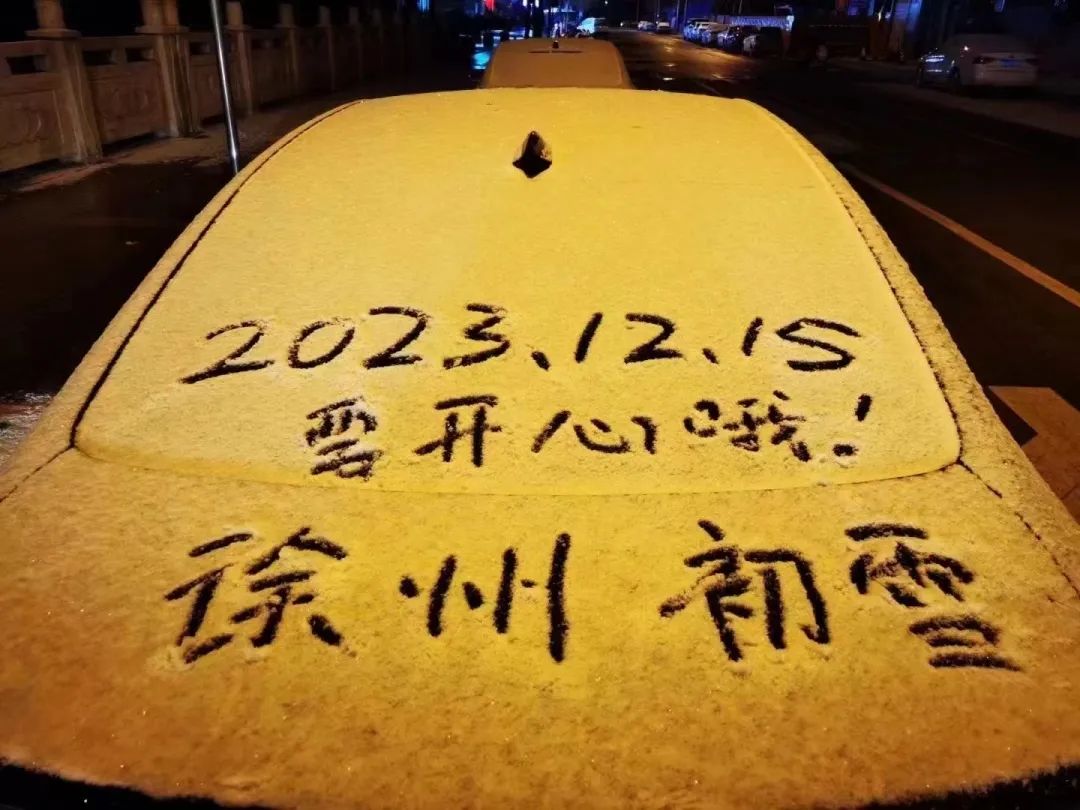 2023、12、15
要开心哦!
徐州 初雪